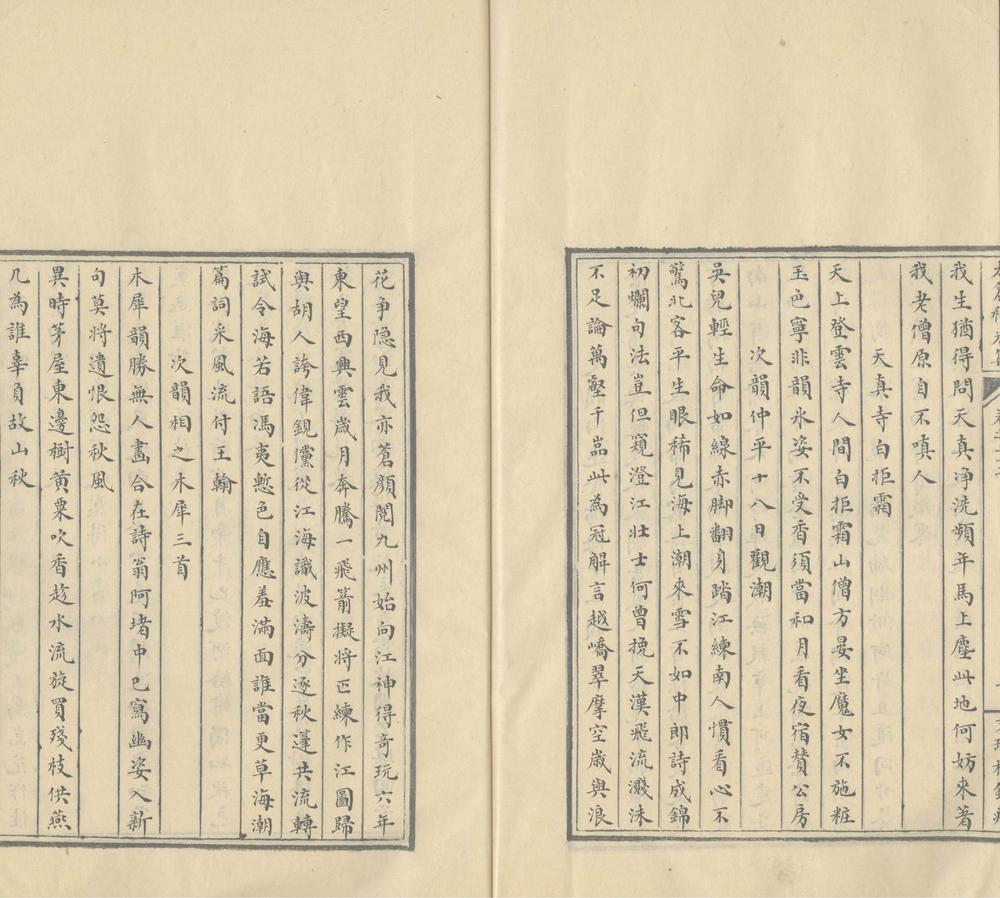 我生猶得問天真净洗頻年馬上塵此地何妨來著
我老僧原自不嗔人
天真寺白拒霜
天上登雲寺人間白拒霜山僧方晏坐魔女不施粧
玉色寧非韻氷姿不受香須當和月看夜宿贊公房
次韻仲平十八日觀潮
吳兒輕生命如線赤脚翻身踏江練南人慣看心不
驚北客平生眼稀見海上潮來雪不如中郎詩成錦
初爛句法豈但窺澄江壯士何曾挽天漢飛流濺沫
不足論萬壑千嵓此為冠解言越嶠翠摩空嵗與浪
花争隐見我亦蒼顔閱九州始向江神得奇玩六年
東望西興雲嵗月奔騰一飛箭擬將疋練作江圖歸
與胡人誇偉覩儻從江海識波濤分逐秋蓬共流轉
試令海若語馮夷慙色自應羞滿面誰當更草海潮
篇詞采風流付王翰
次韻相之木犀三首
木犀韻勝無人畵合在詩翁阿堵中已寫幽姿入新
句莫將遺恨怨秋風
異時茅屋東邊樹黄粟吹香趁水流旋買殘枝供燕
几為誰辜負故山秋